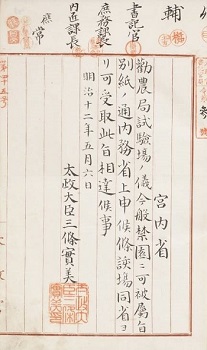 輔
書記官
庶務課長
内匠課長
宮内省
勧農局試験場ノ儀今般禁園ニ可被属旨
別紙ノ通内務省上申候條該場同省ヨ
リ可受取此旨相達候事
明治十二年五月六日
太政大臣三條實美